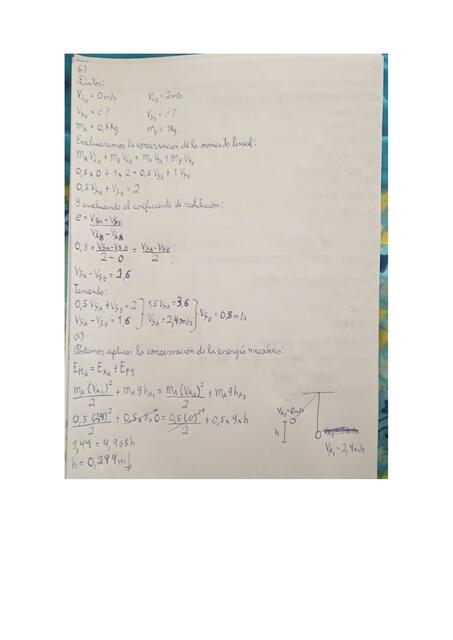 6)
Datos:
V₁A = 0 m/s    V₁B = 2 m/s
V₅A = ¿?    V₅B = ¿?
mA = 0,5 kg    mB = 1 kg
Evaluaremos la conservación de la momento lineal:
mA V₁A + mB V₁B = mA V₅A + mB V₅B
0,5 x 0 + 1 x 2 = 0,5 V₅A + 1 V₅B
0,5 V₅A + V₅B = 2
Y evaluando el coeficiente de restitución:
e = (V₅A - V₅B) / (V₁B - V₁A)
0,8 = (V₅A - V₅B) / (2 - 0) = (V₅A - V₅B) / 2
V₅A - V₅B = 1,6
Teniendo:
0,5 V₅A + V₅B = 2 } 1,5 V₅A = 3,6 } V₅B = 0,8 m/s
V₅A - V₅B = 1,6 } V₅A = 2,4 m/s
a)
Podemos aplicar la conservación de la energía mecánica:
EMA = EKA + EPg
mA (VA₁)²/2 + mA g hA₁ = mA (VA₂)²/2 + mA g hA₂
0,5 (2,4)²/2 + 0,5 x g x 0 = 0,5 (0)²/2 + 0,5 x g x h
1,44 = 4,905 h
h = 0,294 m
VA₂ = 0 m/s
h
VA₁ = 2,4 m/s